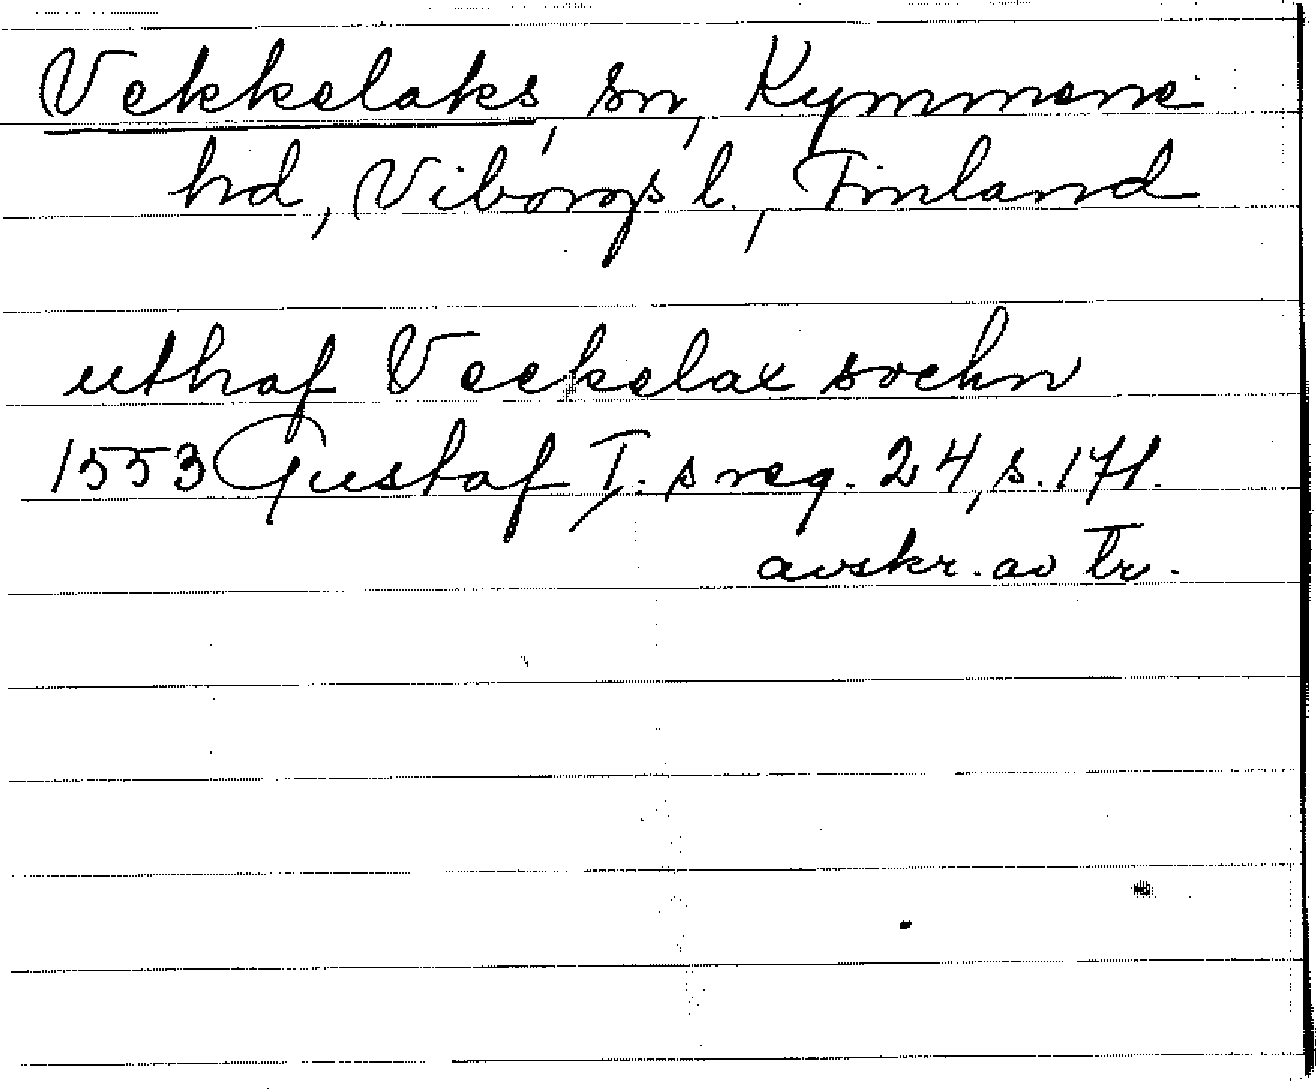 Vekkelaks, sn, Kymmene
hd, Viborgs l., Finland
uthaf Veckelax sochn
1553 Gustaf I.s reg. 24, s. 171.
avskr. av Tr.